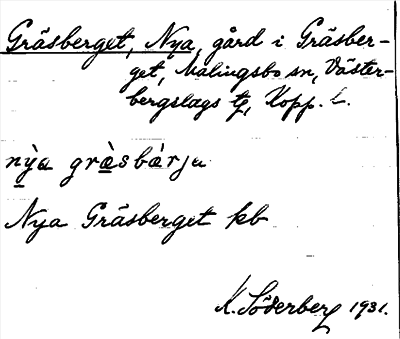 Gräsberget, Nya, gård i Gräsber-
get, Malingsbo sn, Väster-
bergslags tg, Kopp. l.
nỳa gràsbàrja
Nya Gräsberget kb
K. Söderberg 1931.